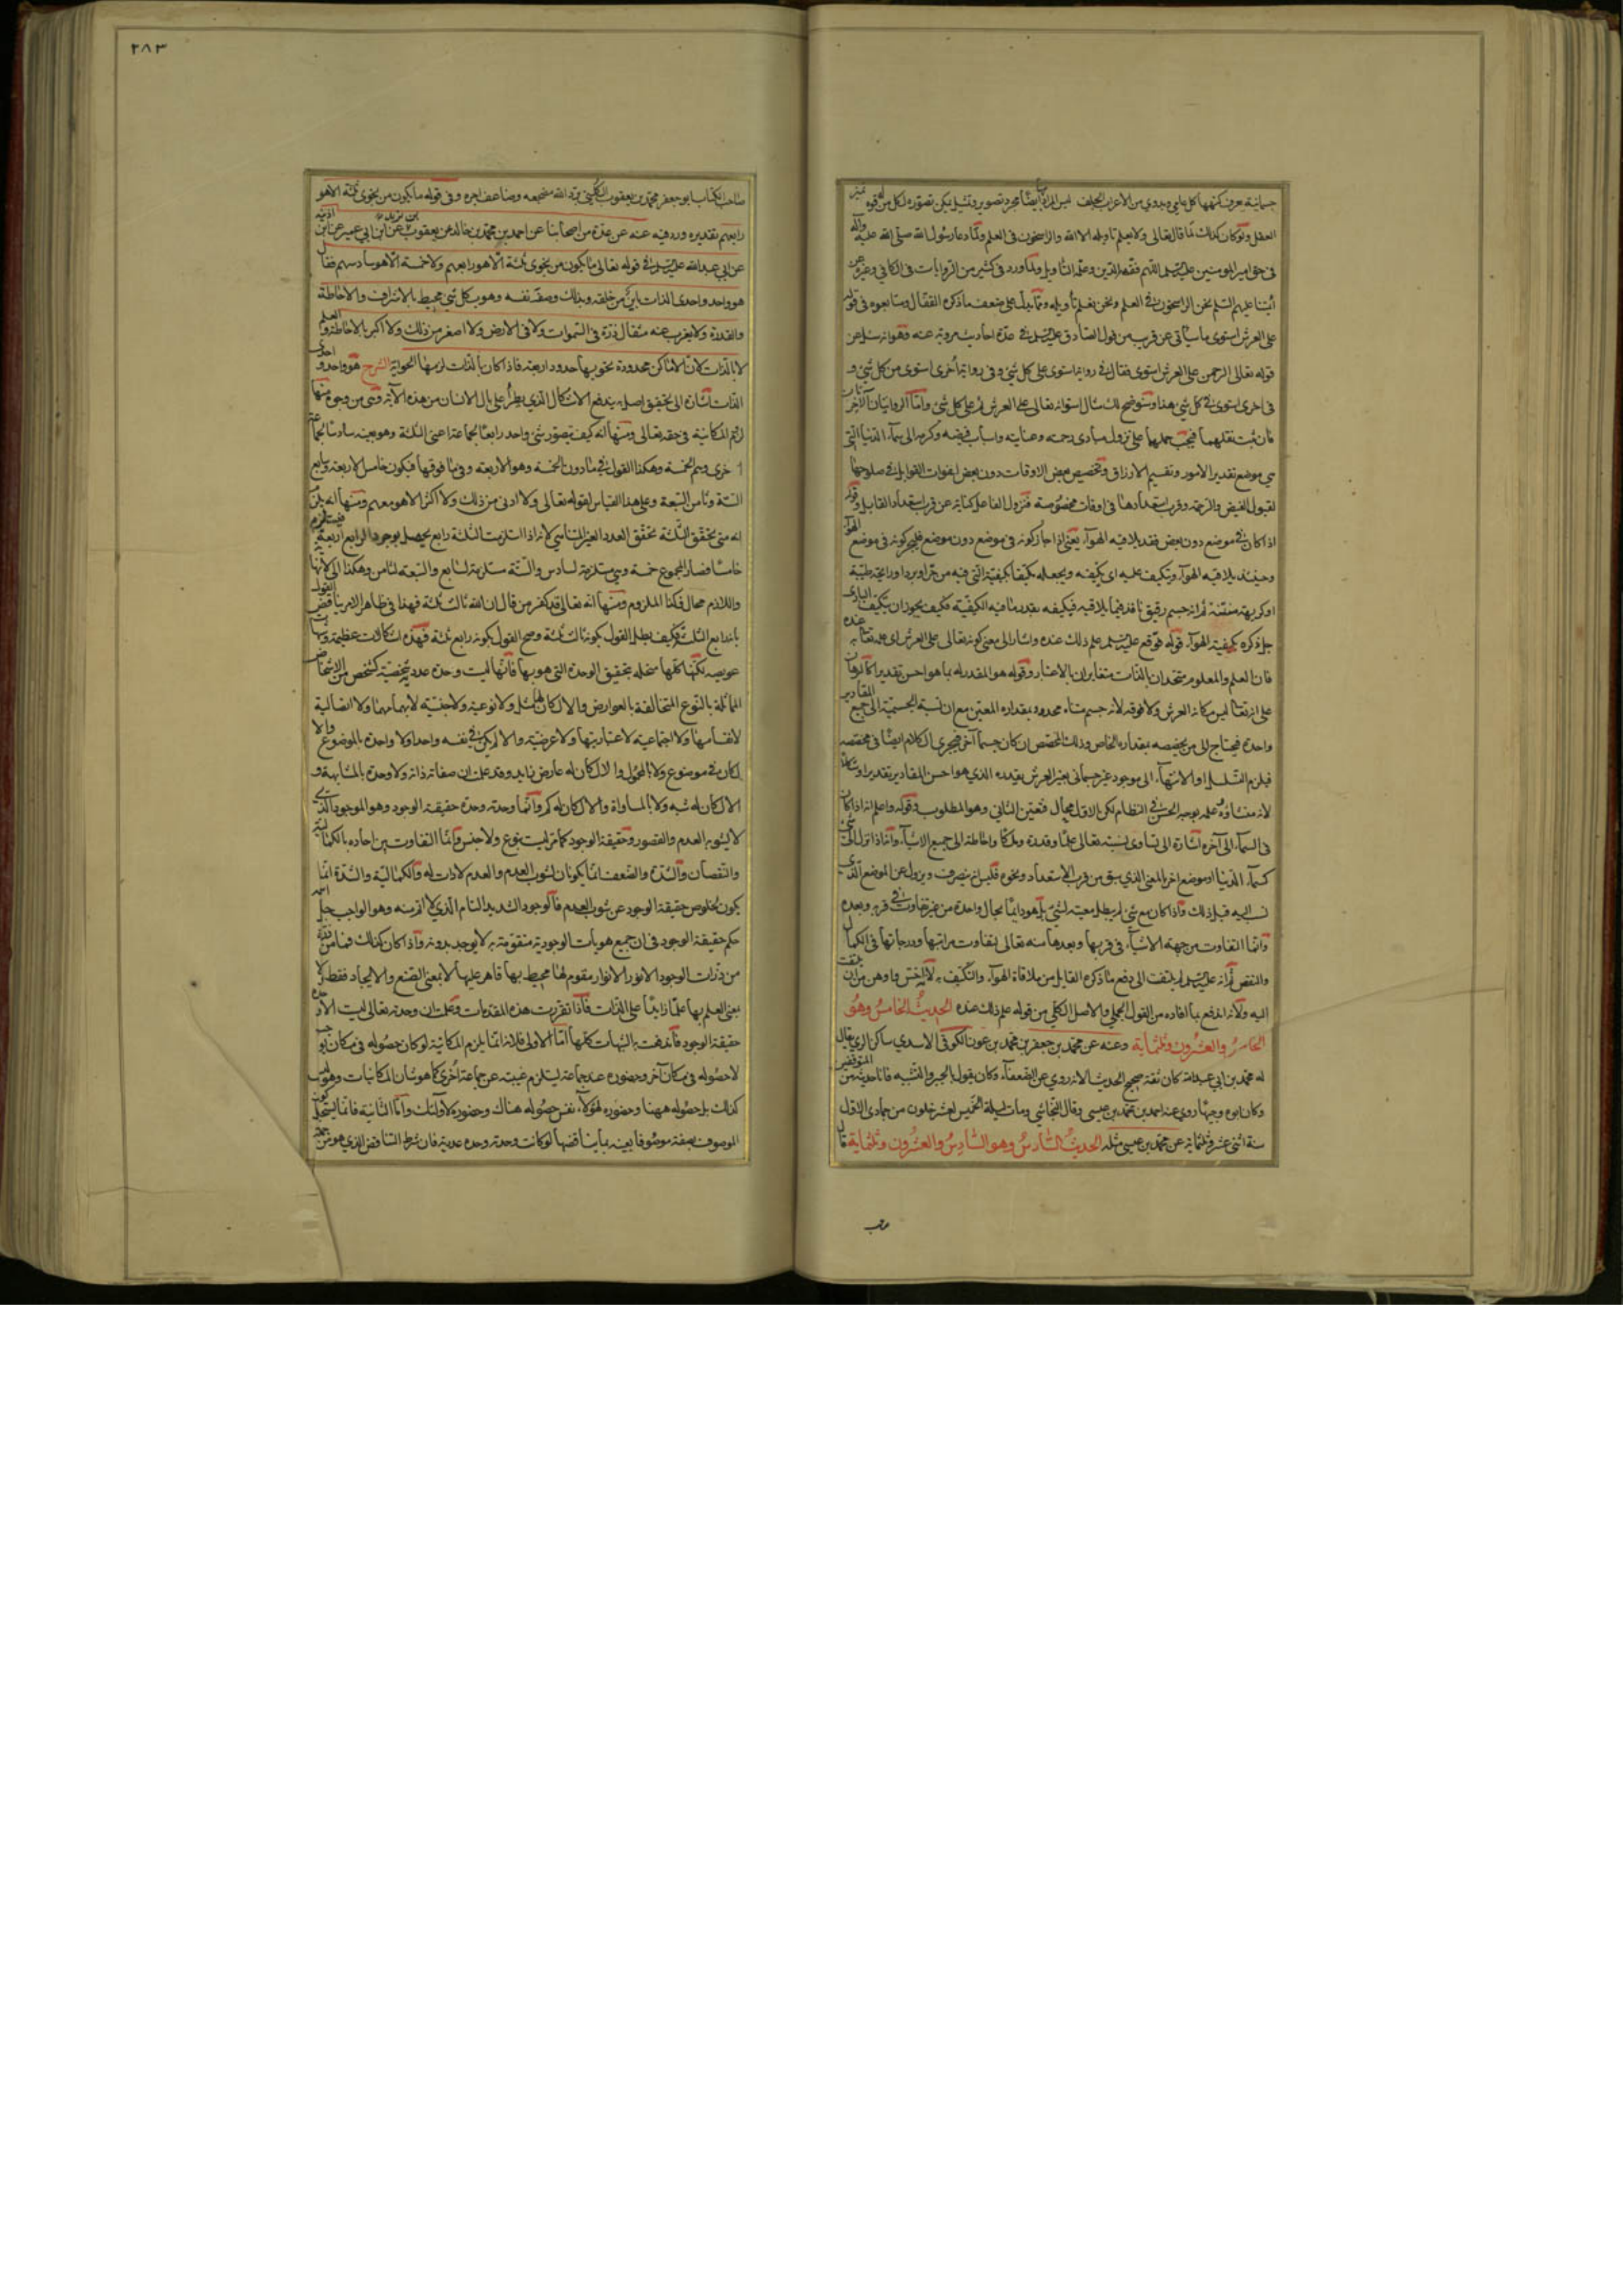 جسمانية يعرف كنهها كل عامي وبدوي من الأعراب الجلف ليس المراد أيضا مجرد تصوير وتمثيل يمكن تصوره لكل من له قوة تميز
العقل ولو كان كذلك لما قال تعالى ولا يعلم تاويله الا الله والراسخون في العلم ولما دعا رسول الله صلى الله عليه وآله
في حق امير المؤمنين عليه السلم اللهم فقهه في الدين وعلمه التأويل ولما ورد في كثير من الروايات في الكافي وغيره عن
أئمتنا عليهم السلم نحن الراسخون في العلم ونحن نعلم تأويله ومما يدل على ضعف ما ذكره القفال ومتابعوه في قوله
على العرش استوى ما سيأتي عن قريب من قول الصادق عليه السلم في عدة احاديث مروية عنه وهو انه سئل عن
قوله تعالى الرحمن على العرش استوى فقال في رواية استوى على كل شيء وفي رواية أخرى استوى من كل شيء و
في اخرى استوى في كل شيء هذا وسنوضح لك مثال استوائه تعالى على العرش ثم على كل شيء وأما الروايتان الآخرتان
فان ثبت نقلهما فيجب حملهما على نزول مبادى رحمته وعنايته واسباب فيضه وكرمه الى سماء الدنيا التي
هي موضع تقدير الامور وتقسيم الارزاق وتخصيص بعض الاوقات دون بعض لتفاوت القوابل في صلوحها
لقبول الفيض والرحمة وقرب استعدادها في اوقات مخصوصة فنزول الفاعل كناية عن قرب استعداد القابل وقوله
اذا كان في موضع دون بعض فقد يلاقيه الهواء يعني اذا جاز كونه في موضع دون موضع فليجز كونه في موضع الهواء
وحينئذ يلاقيه الهواء ويتكيف عليه اي يكيفه ويجعله مكيفا بكيفيته التي فيه من حر او برد او رائحة طيبة
او كريهة منتنة ثم انه جسم رقيق نافذ فيما يلاقيه فيكيفه بقدر ما فيه الكيفية فكيف يجوز ان يتكيف البارى
جل ذكره بكيفية الهواء قوله فوقع عليه السلم علم ذلك عنده واشار الى معنى كونه تعالى على العرش اي علمه تعالى به عنده
فان العلم والمعلوم متحدان بالذات متغايران بالاعتبار وقوله هو المقدر له بما هو احسن تقديرا
على انه تعالى ليس مكانه العرش ولا فوقه لانه جسم متناه محدود بمقداره المعين مع ان نسبة الجسمية الى جميع المقادير
واحدة فيحتاج الى من يخصصه بمقداره الخاص وذلك المخصص ان كان جسما آخر فيجري الكلام ايضا في مخصصه
فيلزم التسلسل او الانتهاء الى موجود غير جسماني يعين العرش بقدره الذي هو احسن المقادير تقديرا
لانه منشاؤه علمه بوجه الحسن في النظام لكن الاول محال فتعين الثاني وهو المطلوب وقوله واعلم انه اذا كان
في السماء الى آخره اشارة الى تساوى نسبته تعالى علما وقدرة وملكا واحاطة الى جميع الاشياء وانه اذا نزل الى شيء
كسماء الدنيا او موضع اخر بالمعنى الذي سبق من قرب الاستعداد ونحوه فليس انه ينصرف ويزول عن الموضع الذي
نسب اليه قبل ذلك واذا كان مع شيء لم يبطل معيته لشيء بل هو دائما بحال واحدة من غير تفاوت في قربه وبعده
وانما التفاوت من جهة الاشياء في قربها وبعدها منه تعالى بتفاوت مراتبها ودرجاتها في الكمال
والنقص ثم انه عليه السلم لم يلتفت الى دفع ما ذكره القايل من ملاقاة الهواء والتكيف به لانه اخس واوهن من ان يلتفت
اليه ولانه اندفع بما افاده من القول الجملي والاصل الكلي من قوله علم ذلك عنده الحديث الخامس وهو
الخامس والعشرون وثلثمائة وعنه عن محمد بن جعفر بن محمد بن عون الكوفي الاسدي ساكن الري يقال
له محمد بن ابي عبد الله كان ثقة صحيح الحديث الا انه روى عن الضعفاء وكان يقول بالجبر والتشبيه فانا في حديثه من المتوقفين
وكان ابوه وجيها روى عنه احمد بن محمد بن عيسى وقال النجاشي ومات ليلة الخميس لعشر خلون من جمادى الاول
سنة اثنى عشر وثلثمائة عن محمد بن عيسى مثله الحديث السادس وهو السادس والعشرون وثلثمائة قال
٢٨٣
صاحب الكتاب ابو جعفر محمد بن يعقوب الكليني برد الله مضجعه وضاعف اجره وفي قوله ما يكون من نجوى ثلثة الا هو
رابعهم تقديره ورد فيه عنه عن عدة من اصحابنا عن احمد بن محمد بن خالد عن يعقوب بن يزيد عن ابن ابي عمير عن ابن اذينة
عن ابي عبد الله عليه السلم في قوله تعالى ما يكون من نجوى ثلثة الا هو رابعهم ولا خمسة الا هو سادسهم فقال
هو واحد واحدي الذات باين من خلقه وبذلك وصف نفسه وهو بكل شيء محيط بالاشراف والاحاطة
والقدرة ولا يعزب عنه مثقال ذرة في السموات ولا في الارض ولا اصغر من ذلك ولا اكبر بالاحاطة والعلم
لا بالذات لان الاماكن محدودة تحويها حدود اربعة فاذا كان بالذات لزمها الحواية الشرح هو واحد واحدى
الذات اشارة الى تحقيق اصل به يندفع الاشكال الذي يطرأ على بال الانسان من هذه الآية وهي من وجوه منها
لزوم المكانية في حقه تعالى ومنها انه كيف يتصور شيء واحد رابعا لجماعة اعنى الثلثة وهو بعينه سادسا لجماعة
اخرى وهم الخمسة وهكذا القول في ما دون الخمسة وهو الاربعة وفي ما فوقها فيكون خامس الاربعة وسابع
الستة وثامن السبعة وعلى هذا القياس لقوله تعالى ولا ادنى من ذلك ولا اكثر الا هو معهم ومنها انه يلزم
انه متى تحقق الثلثة تحقق العدد الغير المتناهي لانه اذا استلزمت الثلثة رابع يحصل بوجود الرابع اربعة فيستلزم
خامسا فصار المجموع خمسة وهي مستلزمة لسادس والستة مستلزمة لسابع والسبعة لثامن وهكذا الى لا نهاية
واللازم محال فكذا الملزوم ومنها انه تعالى قد كفر من قال ان الله ثالث ثلثة فهذا في ظاهر الامر يناقض القول
بانه رابع الثلثة وكيف يبطل القول بكونه ثالث ثلثة وصح القول بكونه رابع ثلثة فهذه اشكالات عظيمة وشبهات
عويصة لكنها كلها منحلة بتحقيق الوحدة التي هو بها فانها ليست وحدة عددية شخصية كشخص من الاشخاص
المماثلة بالنوع المتخالفة بالعوارض والا لكان لها مثل ولا نوعية ولا جنسية لابهامهما ولا اتصالية
لانقسامها ولا اجتماعية لاعتباريتها ولا عرضية والا لم يكن في نفسه واحدا ولا واحدة بالموضوع والا
لكان في موضوع ولا بالمحمول والا لكان له عارض زايد وقد علمت ان صفاته ذاته ولا وحدة بالمشابهة و
الا لكان له شبه ولا بالمساواة والا لكان له كم وانما وحدته وحدة حقيقة الوجود وهو الموجود الذي
لا يشوبه العدم والقصور وحقيقة الوجود كما مر ليست بنوع ولا جنس وانما التفاوت بين احاده بالكمالية
والنقصان والشدة والضعف انما يكونان لشوب العدم والعدم لا ذات له والكمالية والشدة انما
يكون بخلوص حقيقة الوجود عن شوب العدم فالوجود الشديد التام الذي لا اتم منه وهو الواجب جل اسمه
حكم حقيقة الوجود في ان جميع هويات الوجودية متقومة به لا يوجد بدونه واذا كان كذلك فما من ذرة
من ذرات الوجود الا ونور الانوار مقوم لها محيط بها قاهر عليها لا بمعنى الصنع والايجاد فقط ولا
بمعنى العلم بها علما زايدا على الذات فاذا تقررت هذه المقدمات وعلمت ان وحدته تعالى ليست الا وحدة
حقيقة الوجود فاندفعت به الشبهات كلها اما الاولى فلانه انما يلزم المكانية لو كان حصوله في مكان يوجب
لا حصوله في مكان آخر وحضوره عند جماعة يستلزم غيبته عن جماعة أخرى كما هو شان المكانيات وهو ليس
كذلك بل حصوله ههنا وحضوره لهؤلاء نفس حصوله هناك وحضوره لأولئك واما الثانية فانما يستحيل كون
الموصوف بصفة موصوفا بعينه بما يناقضها لو كانت وحدته وحدة عددية فان شرط التناقض الذي هو من جملة